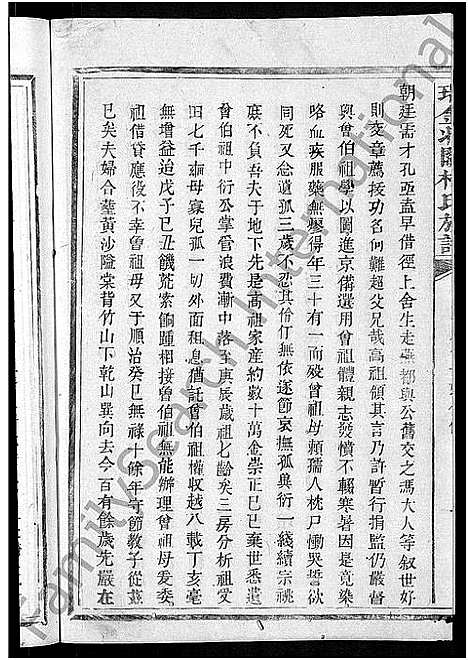 瑞金 林氏族譜
朝廷需才孔亟盍早借徑上舍生走燕都與公舊交之馮大人等叙世好
則文章薦授功名何難超父兄哉高祖頷其言乃許暫行捐監仍嚴督
與會伯祖學以圖進京備選用會祖體親志發憤不輟寒暑因是竟染
咯血疾服藥無瘳得年三十有一而殁曾祖母賴孺人枕尸慟哭誓欲
同死又念遺孤三歲不忍其伶仃無依遂節哀撫孤與衍一綫續宗祧
庶不負吾夫于地下先是高祖家産約數十萬金崇正巳巳棄世悉遺
曾伯祖中衍公掌管浪費漸中落至庚辰歲祖七齡矣三房分析祖受
田七千 毋寡兒孤一切外面租息猶託曾伯祖權收越八載丁亥毫
無增益迨戊子巳丑饑荒索餉踵相接曾伯祖無能辦理曾祖母爰委
祖借貸應役不幸曾祖母又于順治癸巳無祿十餘年守節教子從茲
巳矣夫婦合塟黃沙隘棠背竹山下乾山巽向去今百有餘歲先嚴在
FamilySearch International